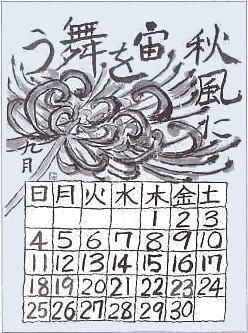 秋風に
宙を
舞う
九月
日 月 火 水 木 金 土
1 2 3
4 5 6 7 8 9 10
11 12 13 14 15 16 17
18 19 20 21 22 23 24
25 26 27 28 29 30